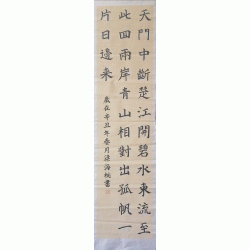 天門中斷楚江開碧水東流至
此回兩岸青山相對出孤帆一
片日邊來
歲在辛丑年月海書